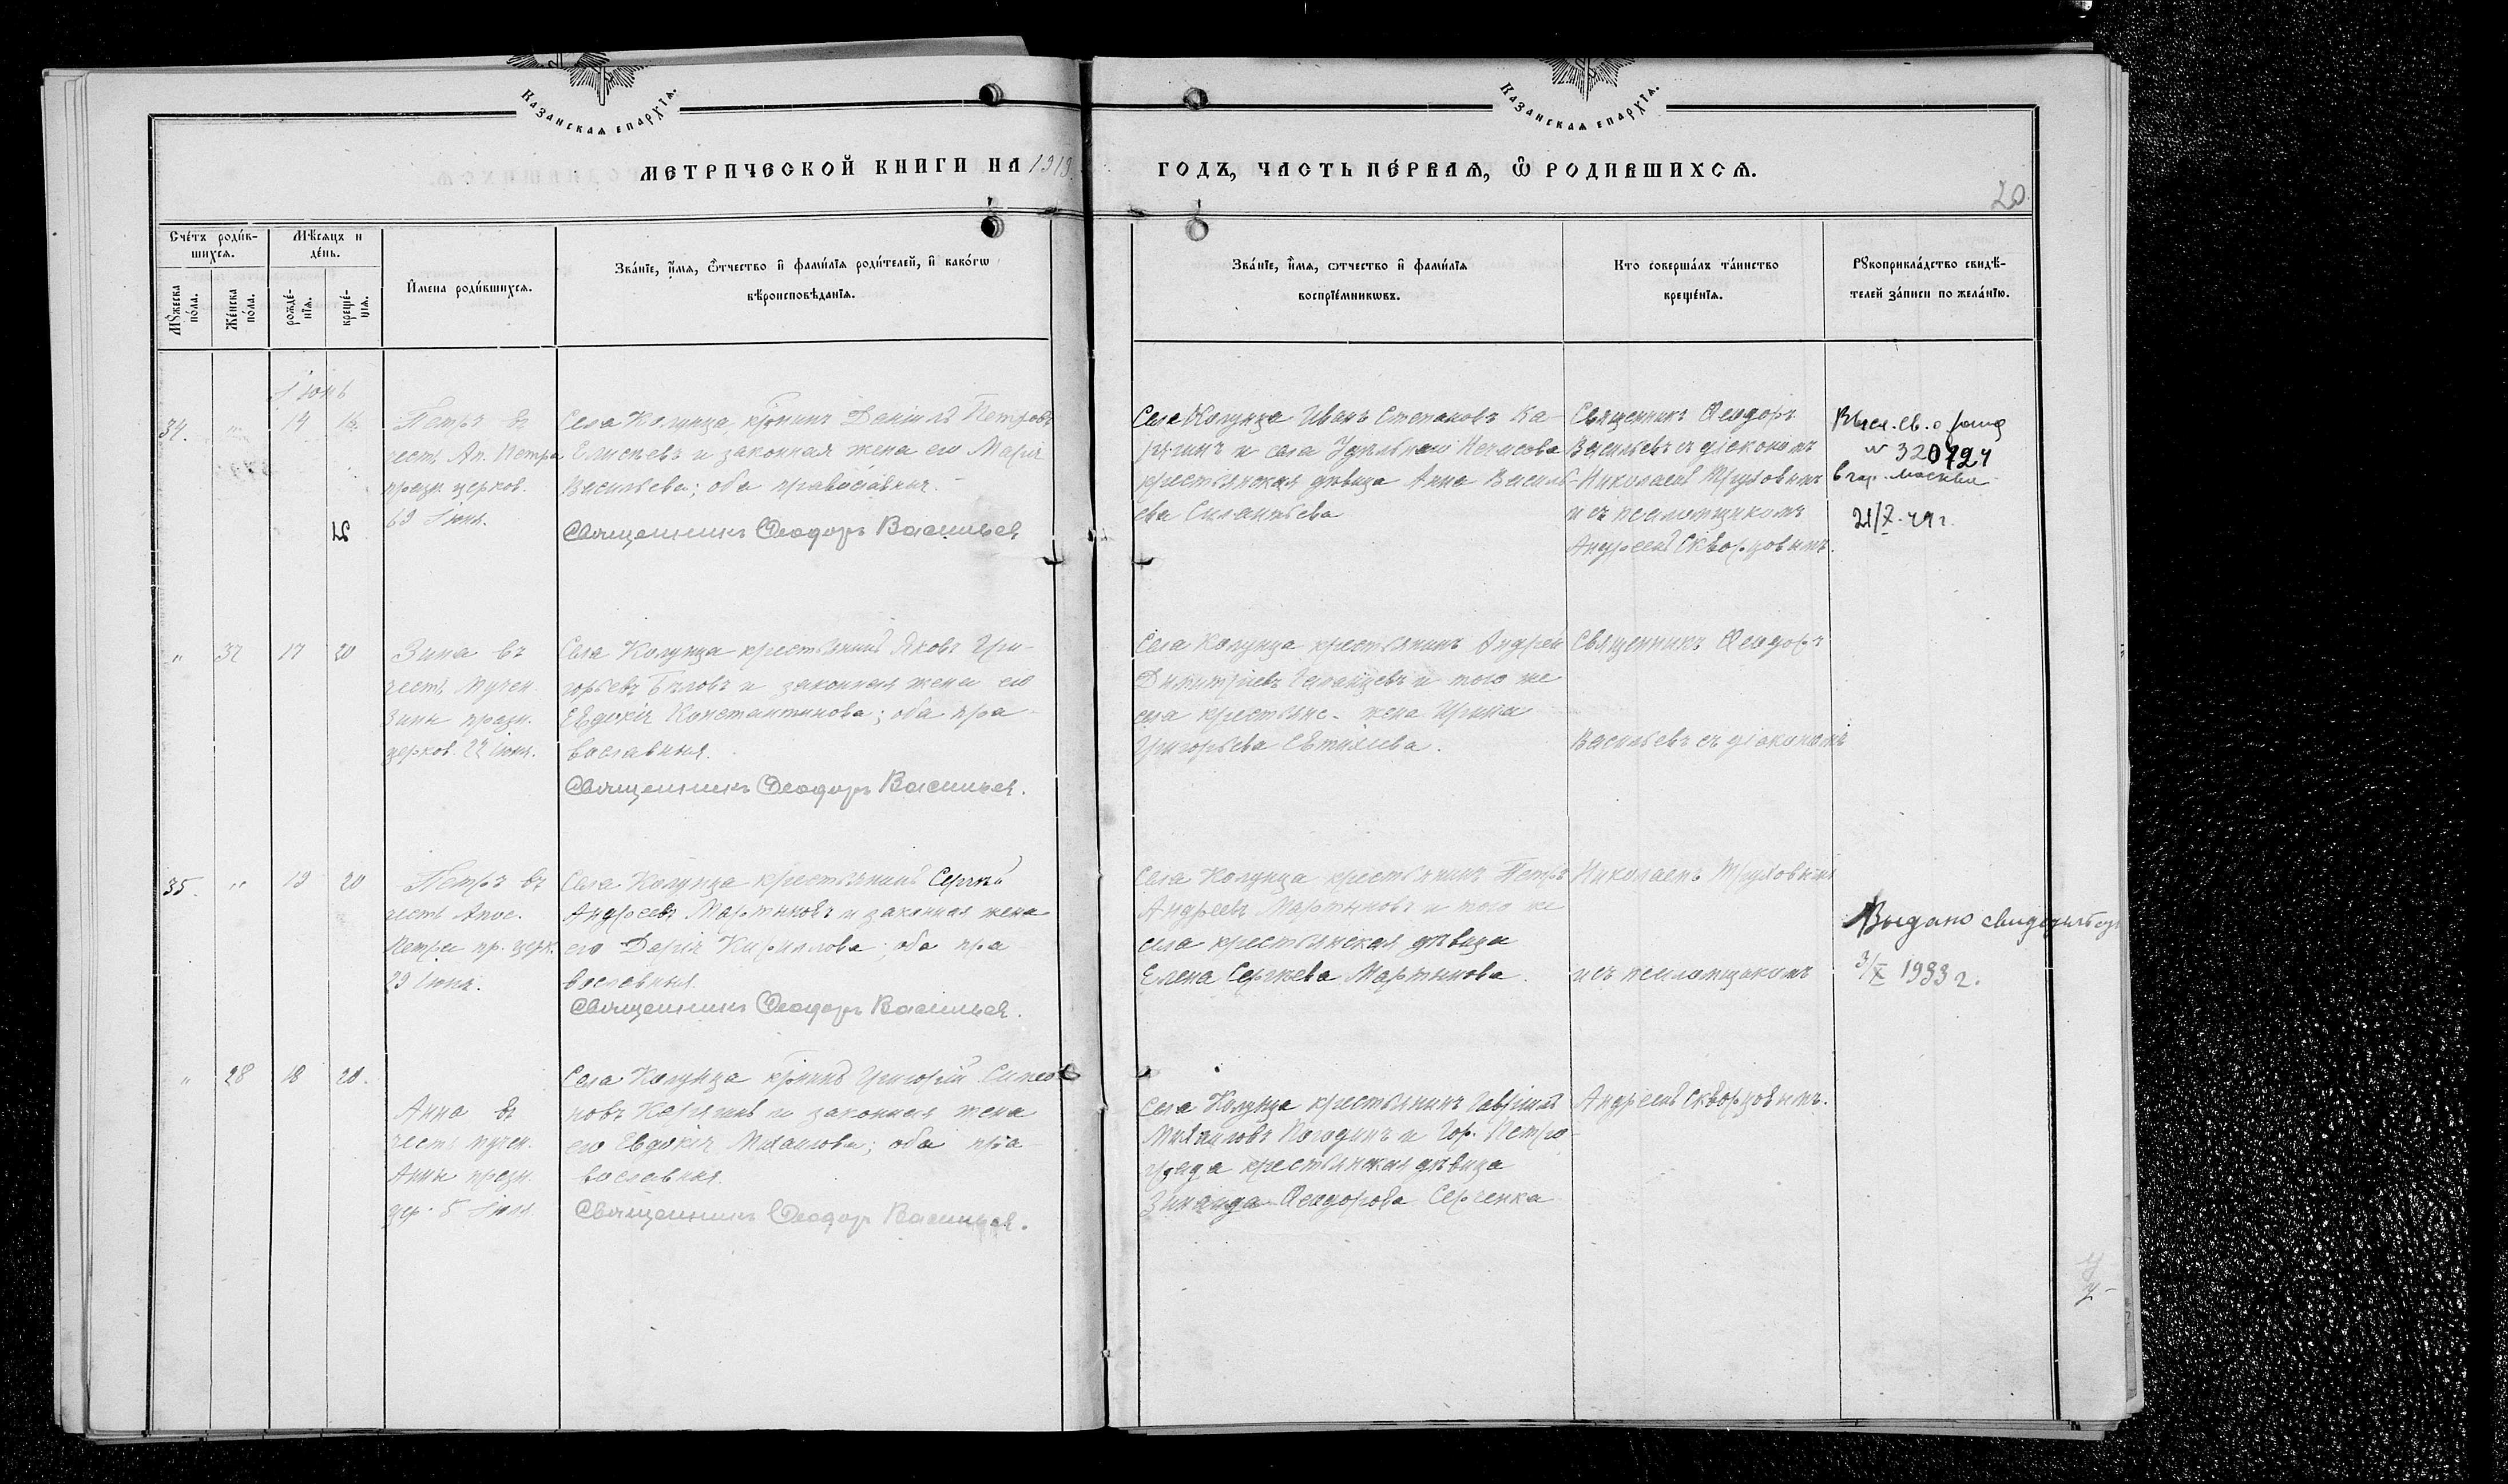 Казанская епархїя.
Казанская епархїя.
МЕТРИЧЕСКОЙ КНИГИ НА 1918
ГОДЪ, ЧАСТЬ ПЕ́РВАЯ, Ѿ РОДИВШИХСЯ.
20.
Сче́тъ роди́в-
шихся.
Мꙋ́жеска
по́ла.
Же́нска
по́ла.
Мѣ́сяцъ и
де́нь.
рожде́-
нїя.
креще́-
нїя.
И҆мена роди́вшихся.
Зва́нїе, и҆́мя, ѻ҆́тчество и҆ фами́лїя роди́телей, и҆ како́гѡ
вѣроисповѣ́данїя.
Зва́нїе, и҆́мя, ѻтчество и҆ фами́лїя
воспрїе́мникѡвъ.
Кто соверша́лъ та́инство
креще́нїя.
Рꙋкоприкла́дство свидѣ́-
телей за́писи по жела́нїю.
Іюнь
34. " 14
Петръ въ
честь Ап. Петра
празн. церков.
Іюня.
Села Колунца, кр-нинъ Даніилъ Петровъ
Елисѣевъ и законная жена его Марія
Васильева; оба православные.
Священникъ Ѳеодоръ Васильев
Села Колунца Иванъ Степановъ Ка-
и села
крестьянская дѣвица Анна Василь-
ева Силантьева
Священникъ Ѳеодоръ
Васильевъ съ діакономъ
Николаемъ Труховымъ
и съ псаломщикомъ
Андреемъ Скворцовымъ.
№ 320724
в гор. Москве
21/X-49 г.
" 37 17 20
Зина въ
честь мучен.
Зины празн.
церков. 22 Іюня.
Села Колунца крестьянинъ Яковъ Гри-
горьевъ Бѣловъ и законная жена его
Евдокія Константинова; оба пра-
вославныя.
Священникъ Ѳеодоръ Васильев.
Села Колунца крестьянинъ Андрей
Димитріевъ и того же
села крестьянс. жена Ирина
Григорьева
Священникъ Ѳеодоръ
Васильевъ съ діакономъ
35. " 19 20
Петръ въ
честь Апос.
Петра пр. церк.
29 Іюня.
Села Колунца крестьянинъ Сергѣй
Андреевъ Мартыновъ и законная жена
его Дарія Кириллова; оба пра-
вославныя.
Священникъ Ѳеодоръ Васильев.
Села Колунца крестьянинъ Петръ
Андреевъ Мартыновъ и того же
села крестьянская дѣвица
Елена Сергѣева Мартынова.
Николаемъ Труховымъ
и съ псаломщикомъ
Выдано
3/X 1933 г.
" 28 18 20.
Анна въ
честь мучен.
Анны празн.
цер. 5 Іюля
Села Колунца кр-нинъ Григорій Симео-
новъ и законная жена
его Евдокія Михаилова; оба пра-
вославныя.
Священникъ Ѳеодоръ Васильев.
Села Колунца крестьянинъ Гавріилъ
Михаиловъ Погодинъ и гор. Петро-
града крестьянская дѣвица
Зинаида Ѳеодорова Сергенка
Андреемъ Скворцовымъ.